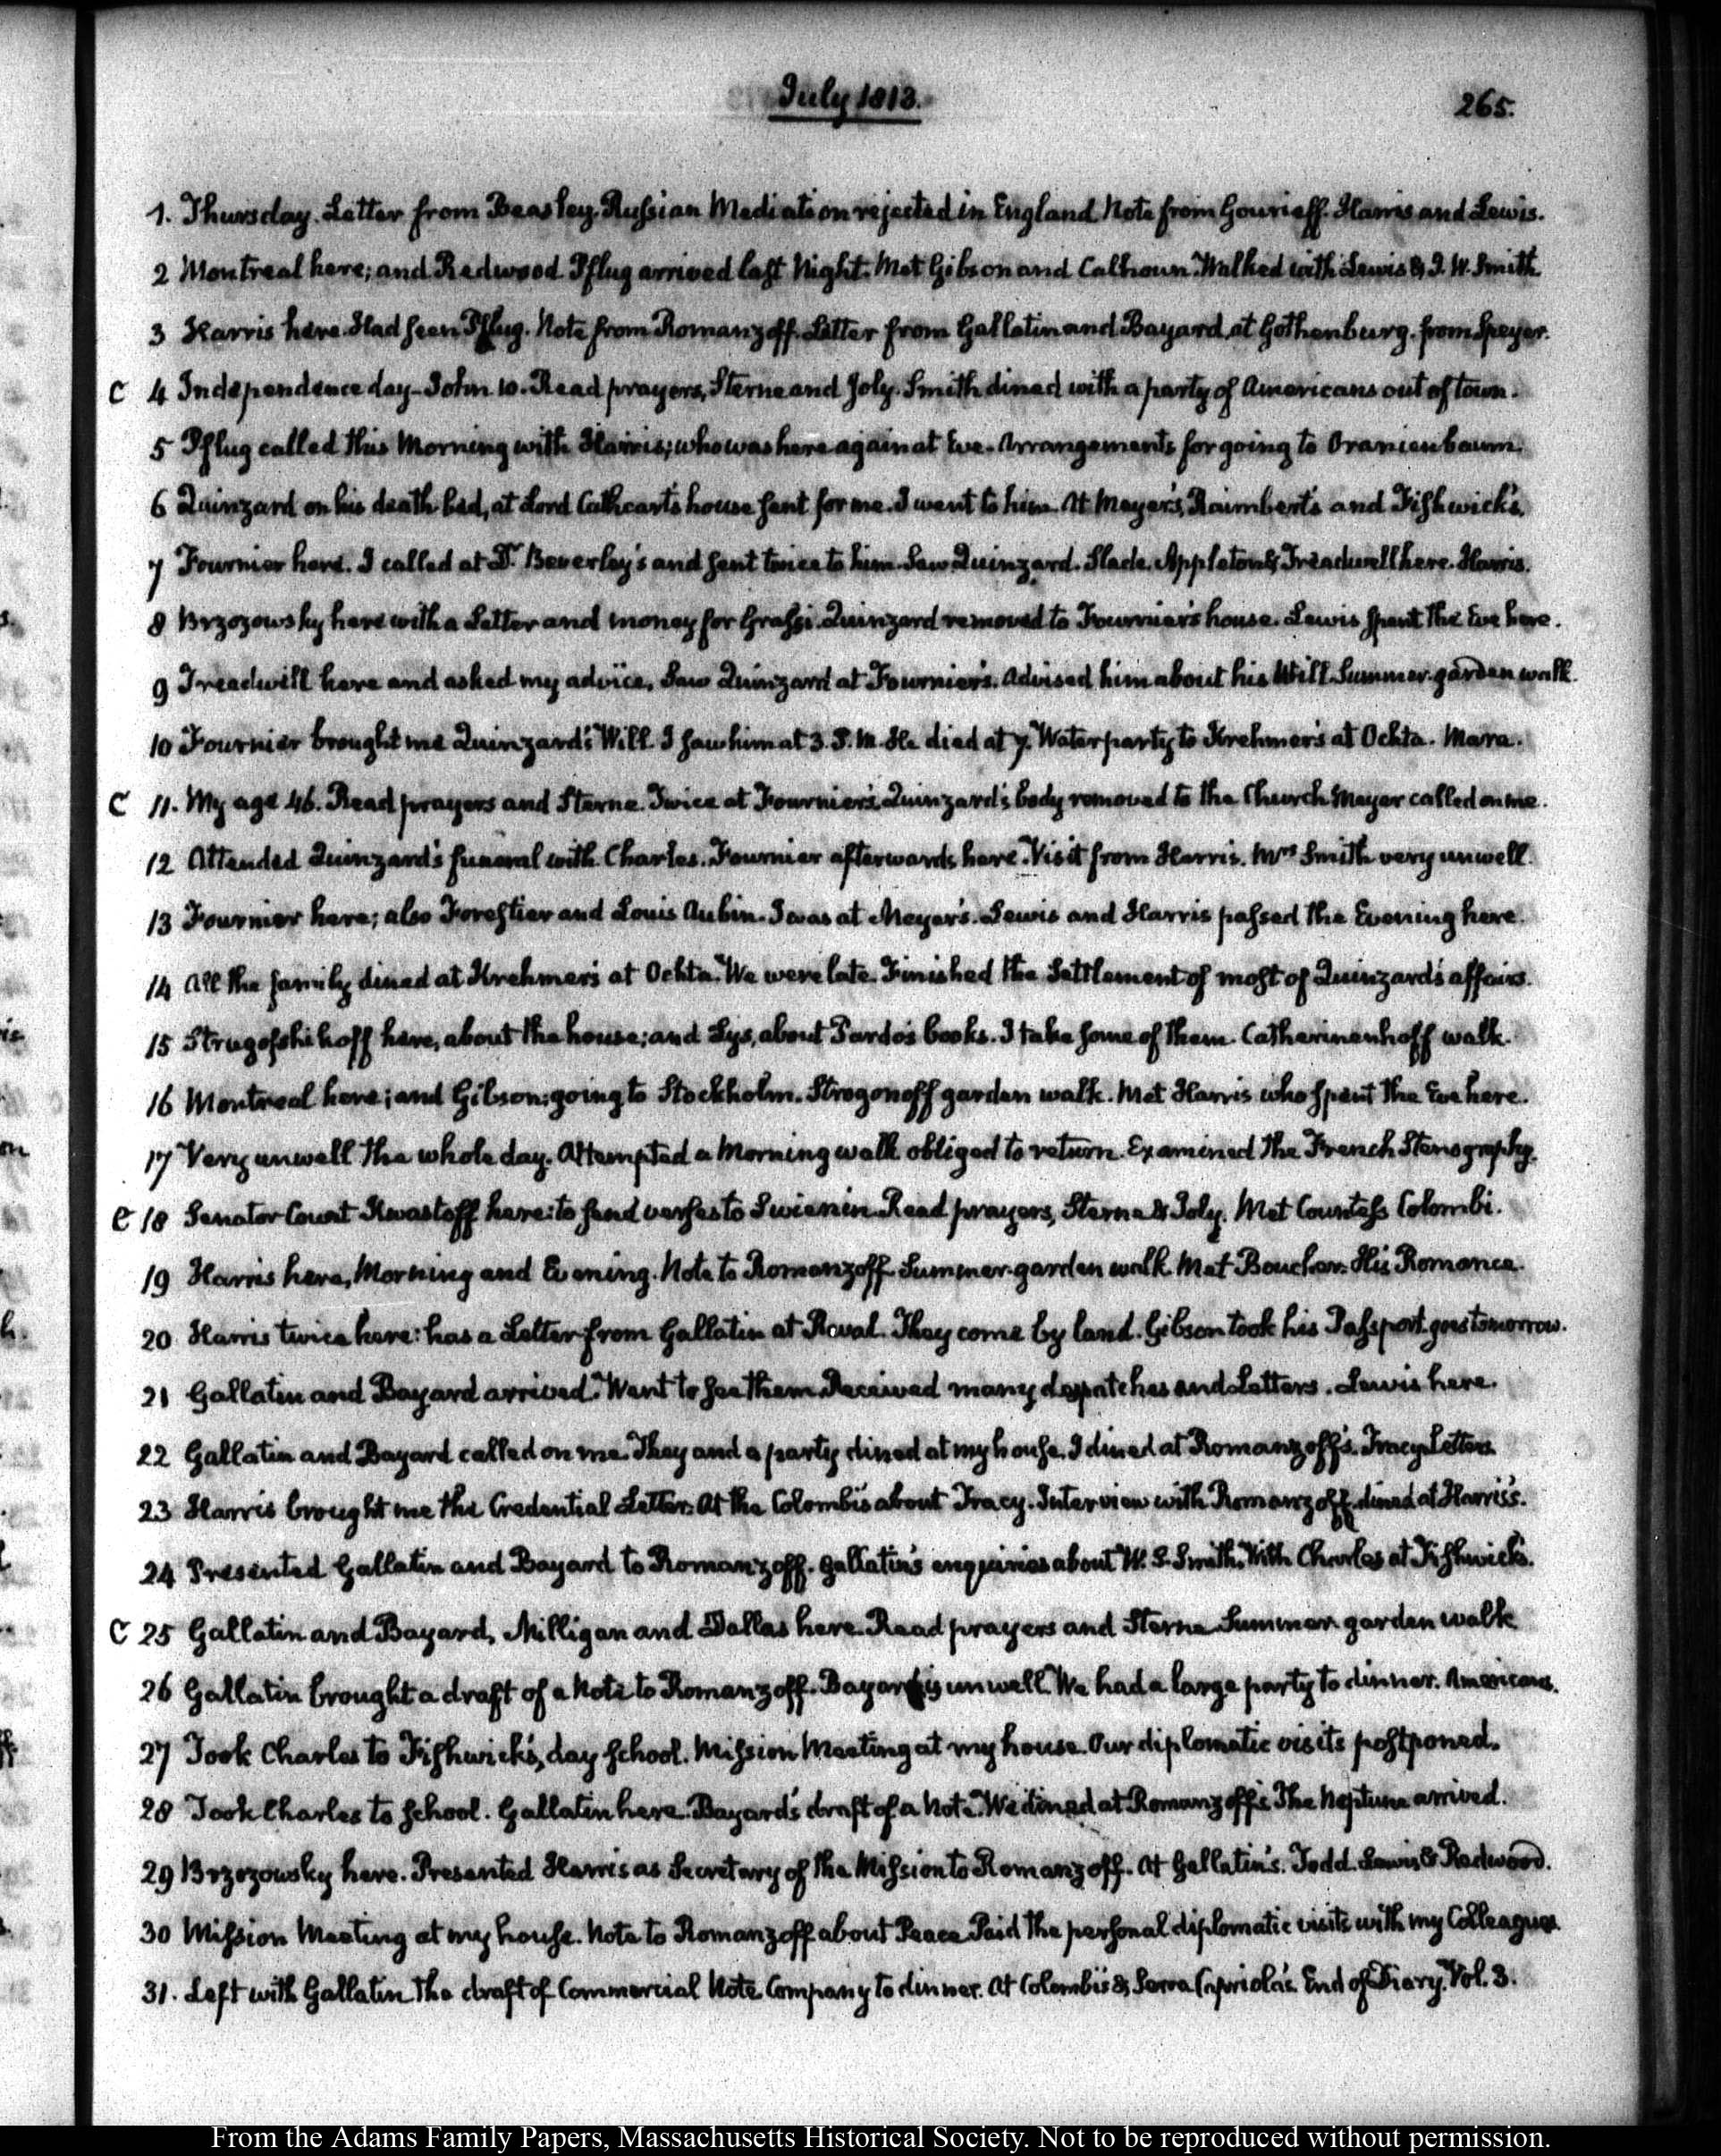 July 1813.
265.
1. Thursday. Letter from Beasley. Russian Mediation rejected in England. Note from Gourieff. Harris and Lewis.
2 Montreal here; and Redwood. Pflug arrived last Night. Met Gibson and Calhoun. Walked with Lewis & J. W. Smith.
3 Harris here. Had seen Pflug. Note from Romanzoff. Letter from Gallatin and Bayard at Gothenburg. from Speyer.
C 4 Independence day—John 10. Read prayers, Sterne and Joly. Smith dined with a party of Americans out of town.
5 Pflug called this Morning with Harris; who was here again at Eve. Arrangements for going to Oranienbaum.
6 Quinzard on his death bed, at Lord Cathcart's house sent for me. I went to him. At Meyer's, Raimbert's and Fishwick's.
7 Fournier here. I called at Dr. Beverley's and sent twice to him. Saw Quinzard. Slade. Appleton & Treadwell here. Harris.
8 Brzozowsky here with a Letter and money for Grassi. Quinzard removed to Fournier's house. Lewis spent the Eve here.
9 Treadwell here and asked my advice. Saw Quinzard at Fournier's. Advised him about his Will. Summer-garden walk.
10 Fournier brought me Quinzard's Will. I saw him at 3. P.M. He died at 7. Water party to Krehmer's at Ochta. Mara.
C 11. My age 46. Read prayers and Sterne. Twice at Fournier's. Quinzard's body removed to the Church. Meyer called on me.
12 Attended Quinzard's funeral with Charles. Fournier afterwards here. Visit from Harris. Mrs Smith very unwell.
13 Fournier here; also Forestier and Louis Aubin. I was at Meyer's. Lewis and Harris passed the Evening here.
14 All the family dined at Krehmer's at Ochta. We were late. Finished the Settlement of most of Quinzard's affairs.
15 Strugofshikoff here, about the house; and Lys, about Pardo's books. I take some of them. Catherinenhoff walk.
16 Montreal here; and Gibson; going to Stockholm. Strogonoff garden walk. Met Harris who spent the Eve here.
17 Very unwell the whole day. Attempted a Morning walk obliged to return. Examined the French Stenography.
C 18 Senator Count Kwastoff here: to send verses to Swienin. Read prayers, Sterne & Joly. Met Countess Colombi.
19 Harris here, Morning and Evening. Note to Romanzoff. Summer-garden walk. Met Boucher. His Romance.
20 Harris twice here: has a Letter from Gallatin at Reval. They come by land. Gibson took his Passport. goes tomorrow.
21 Gallatin and Bayard arrived. Went to see them. Received many despatches and Letters. Lewis here.
22 Gallatin and Bayard called on me. They and a party dined at my house. I dined at Romanzoff's. Tracy. Letters.
23 Harris brought me the Credential Letter. At the Colombi's about Tracy. Interview with Romanzoff. dined at Harris's.
24 Presented Gallatin and Bayard to Romanzoff. Gallatin's enquiries about W. S. Smith. With Charles at Fishwick's.
C 25 Gallatin and Bayard, Milligan and Dallas here. Read prayers and Sterne. Summer garden walk
26 Gallatin brought a draft of a Note to Romanzoff. Bayard is unwell. We had a large party to dinner. Americans.
27 Took Charles to Fishwick's, day school. Mission Meeting at my house. Our diplomatic visits postponed.
28 Took Charles to School. Gallatin here. Bayard's draft of a Note. We dined at Romanzoff's. The Neptune arrived.
29 Brzozowsky here. Presented Harris as Secretary of the Mission to Romanzoff. At Gallatin's. Todd. Lewis & Redwood.
30 Mission Meeting at my house. Note to Romanzoff about Peace. Paid the personal diplomatic visits with my Colleagues.
31. Left with Gallatin the draft of Commercial Note. Company to dinner. At Colombi's & Serra Capriola's. End of Diary. Vol. 3.
From the Adams Family Papers, Massachusetts Historical Society. Not to be reproduced without permission.